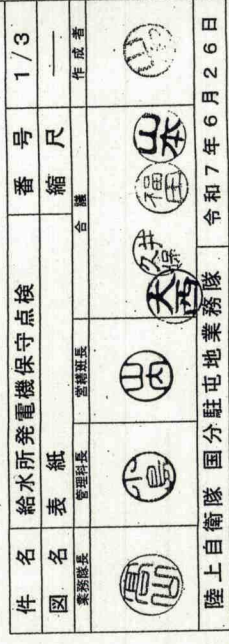 件 名 給水所発電機保守点検 番 号 1/3
図 名 表 紙 縮 尺 ―
業務隊長 管理科長 営繕班長 合 議 作 成 者
小島 山内 大西 久保井 福田 山本 山
陸上自衛隊 国分駐屯地業務隊 令和7年6月26日